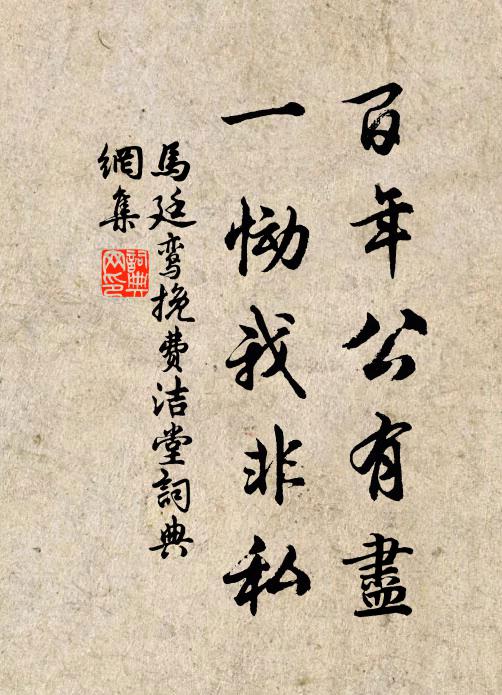 百年公有盡
一慟我非私
馬廷鸾挽費洁堂詞典
網集
詞典网印